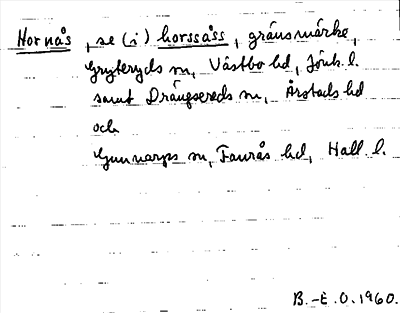 Hornås, se (i) horssåss, gränsmärke,
Gryteryds sn, Västbo hd, Jönk. l.
samt Drängsereds sn, Årstads hd
och
Gunnarps sn, Faurås hd, Hall. l.
B.-E. O. 1960.